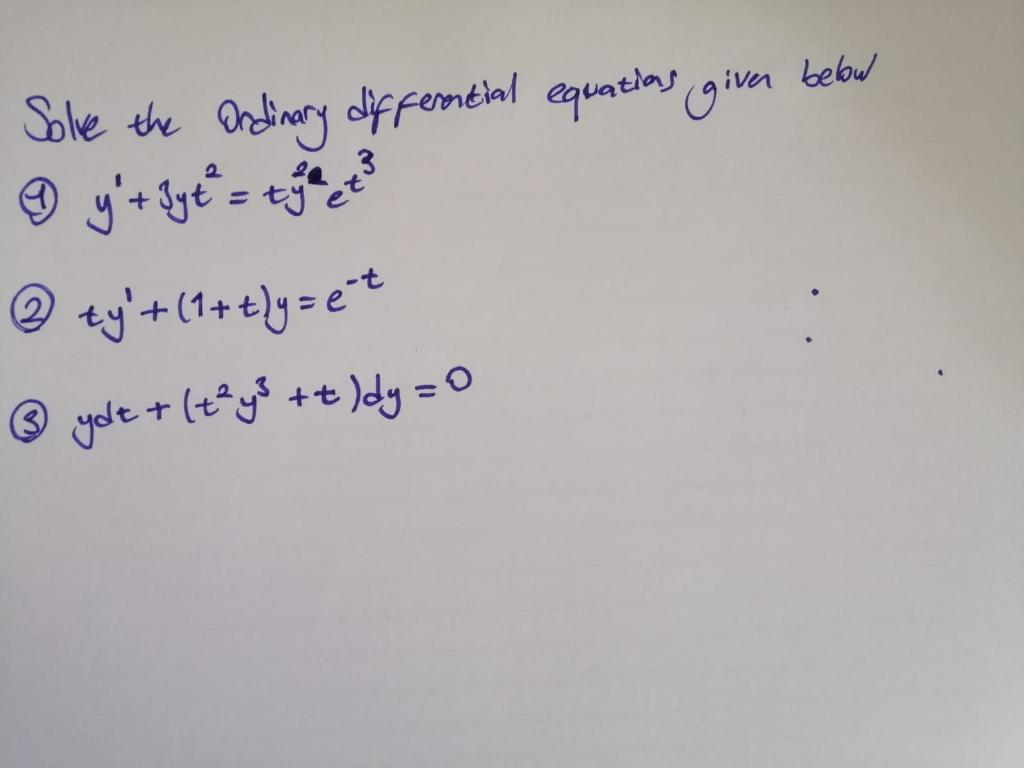 Solve the Ordinary differential equations given below
① y' + 3yt² = ty²e^t³
② ty' + (1+t)y = e^-t
③ ydt + (t²y³ + t)dy = 0